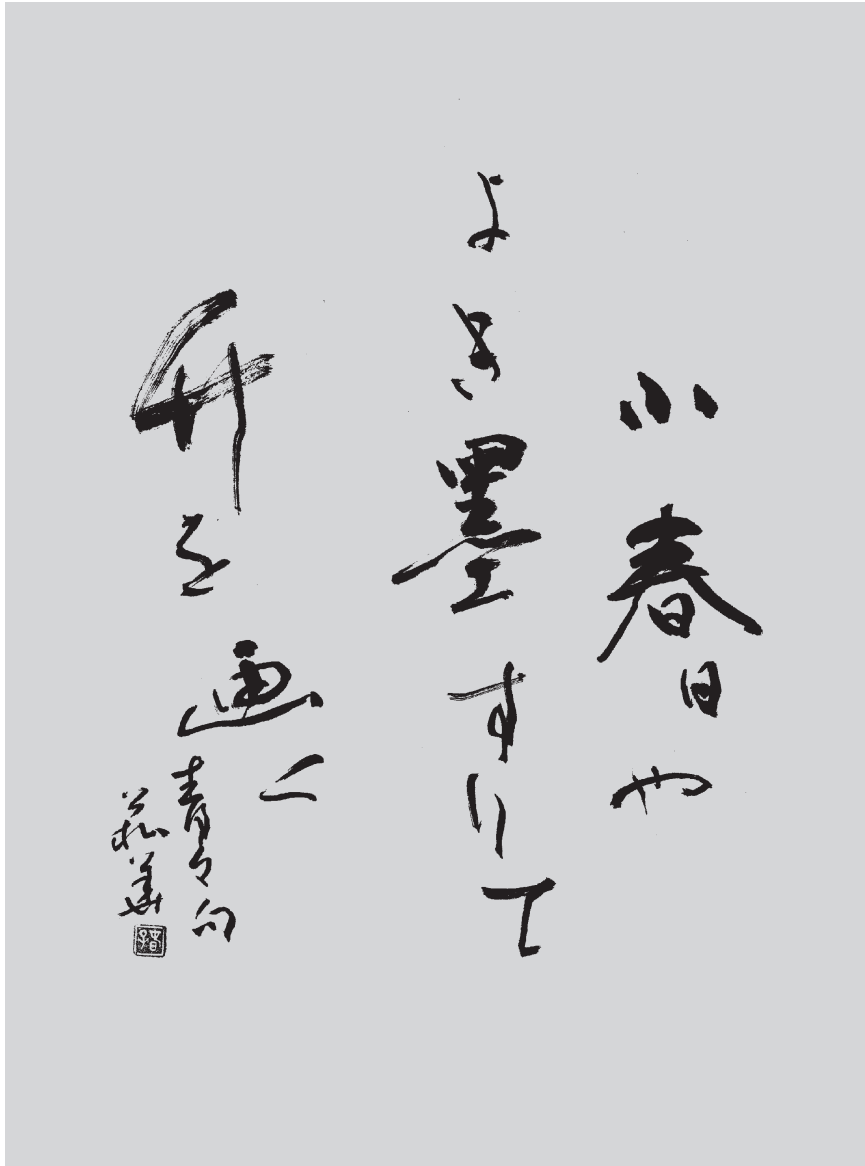 小春日や
よき墨すりて
竹を画く
青々句